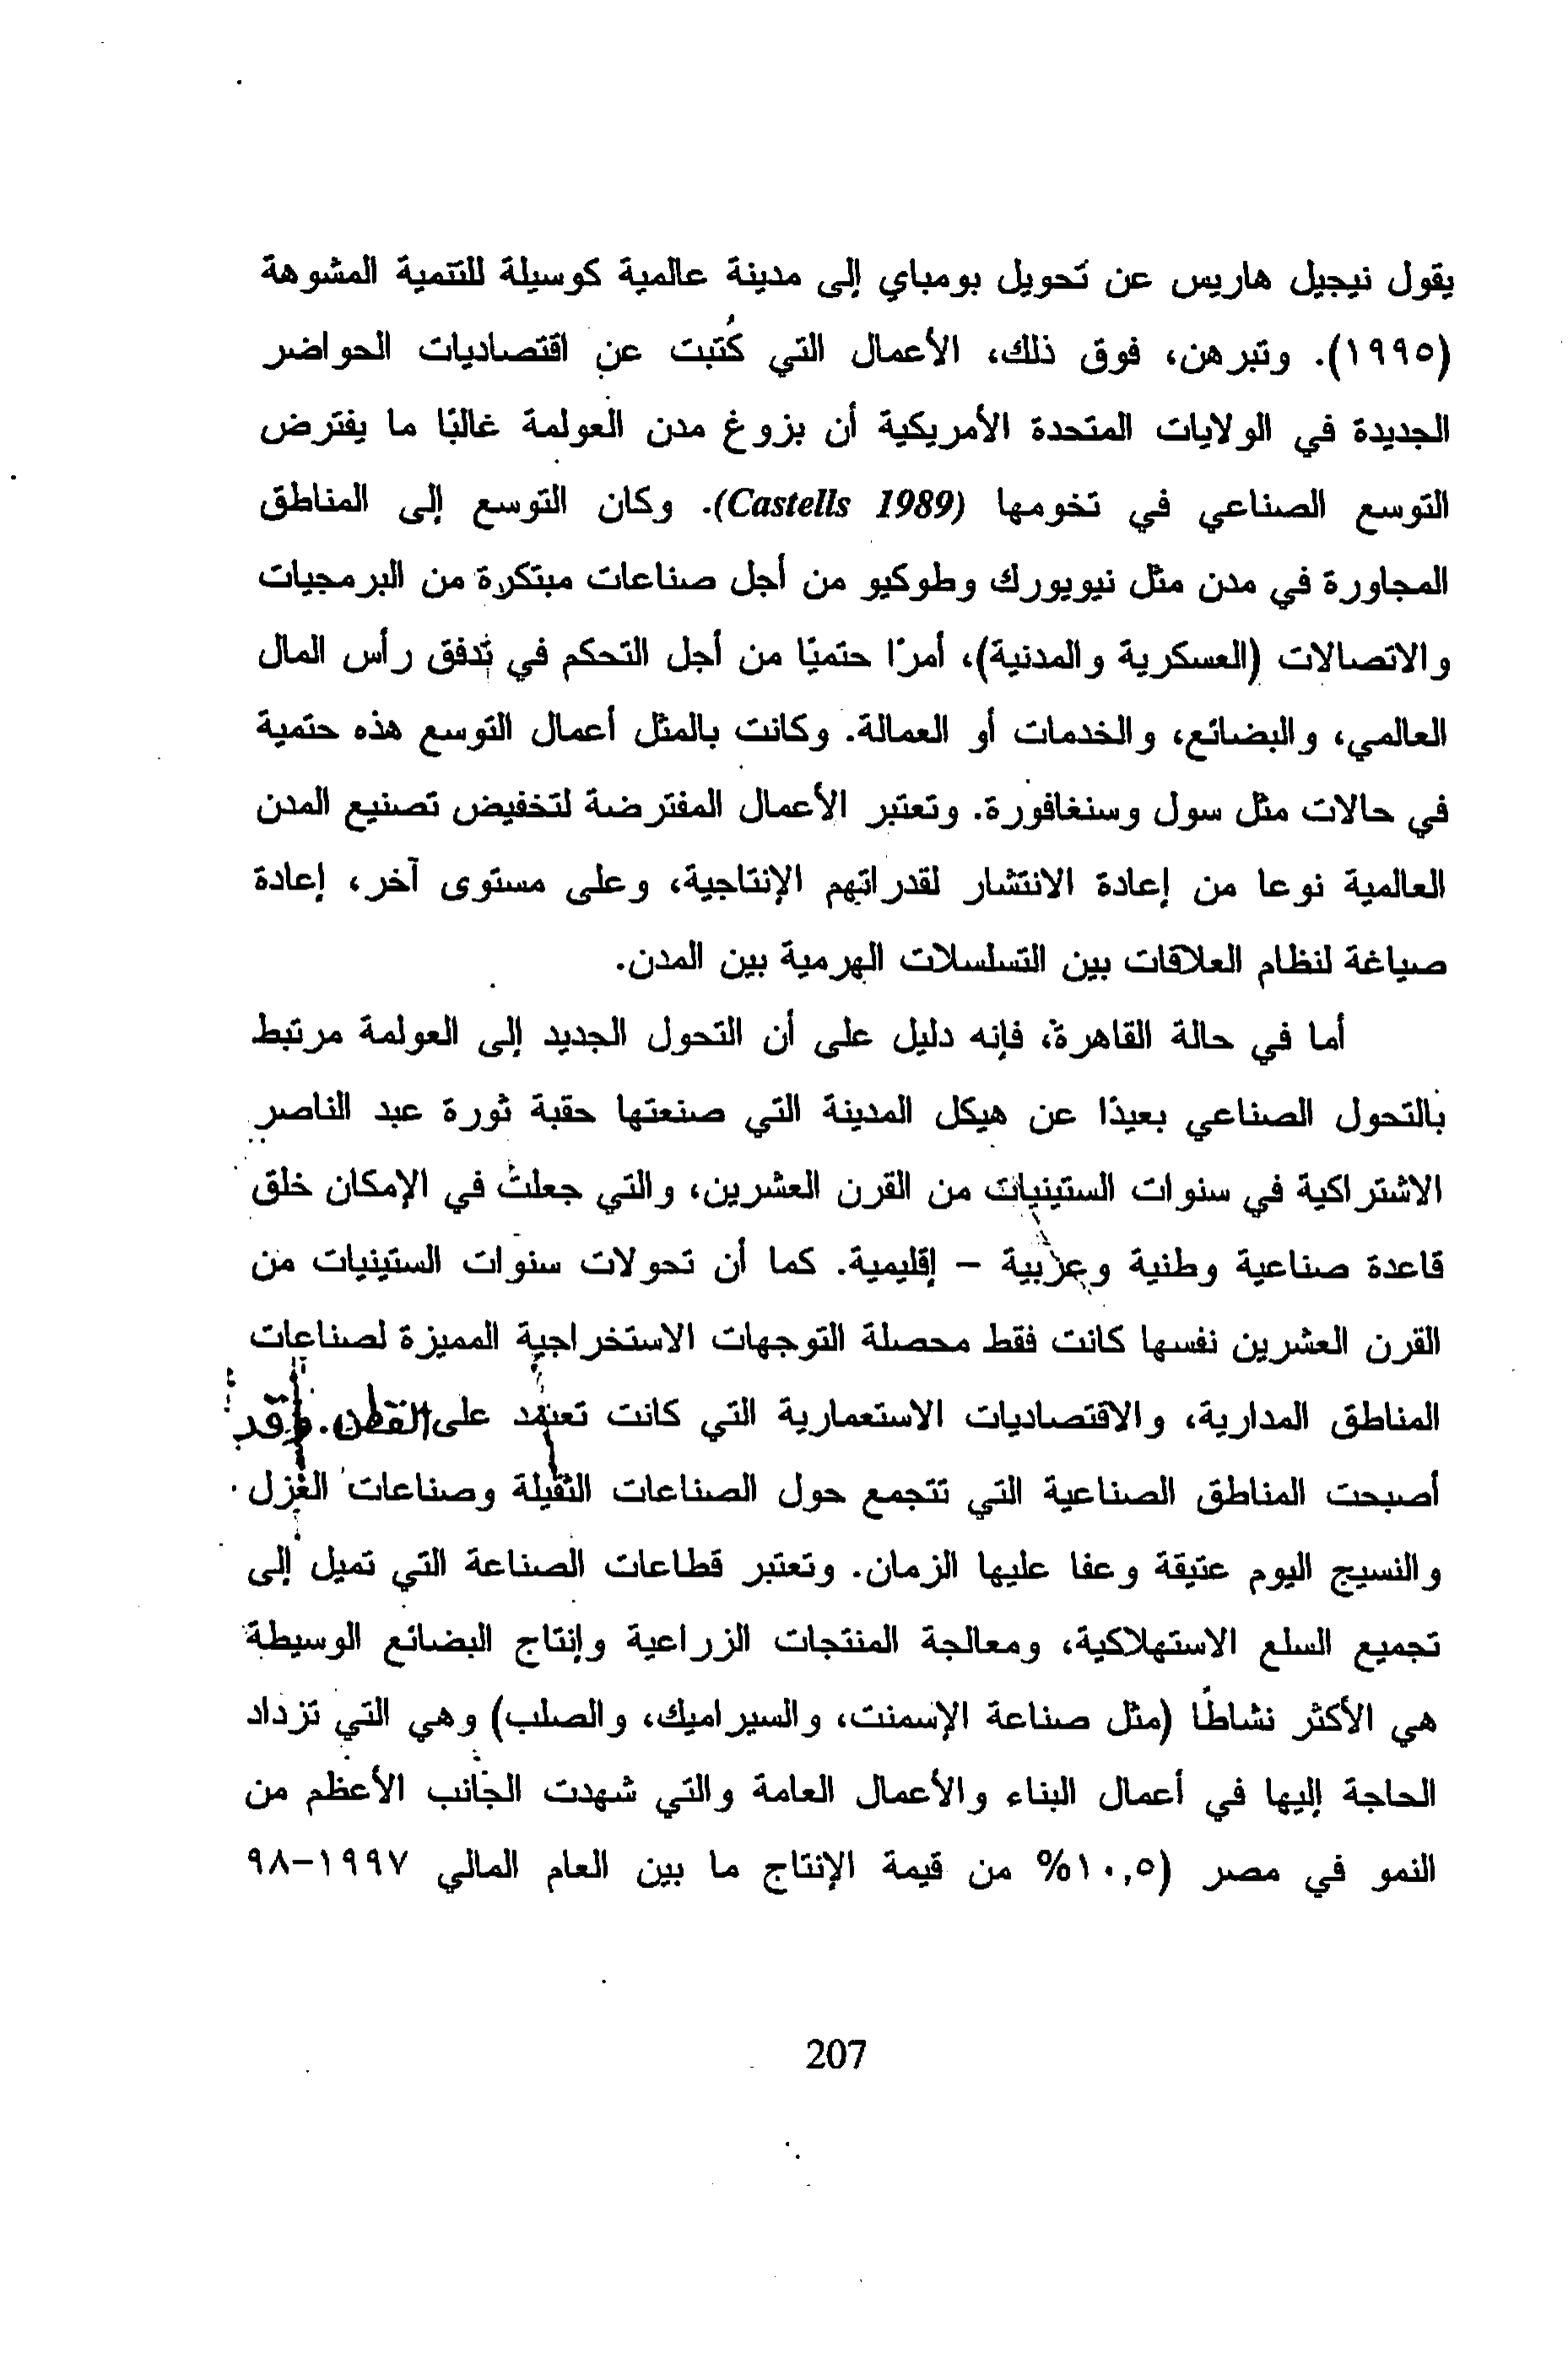 يقول نيجيل هاريس عن تحويل بومباي إلى مدينة عالمية كوسيلة للتنمية المشوهة
(١٩٩٥). وتبرهن، فوق ذلك، الأعمال التي كُتبت عن اقتصاديات الحواضر
الجديدة في الولايات المتحدة الأمريكية أن بزوغ مدن العولمة غالبًا ما يفترض
التوسع الصناعي في تخومها (Castells 1989). وكان التوسع إلى المناطق
المجاورة في مدن مثل نيويورك وطوكيو من أجل صناعات مبتكرة من البرمجيات
والاتصالات (العسكرية والمدنية)، أمرًا حتميًا من أجل التحكم في تدفق رأس المال
العالمي، والبضائع، والخدمات أو العمالة. وكانت بالمثل أعمال التوسع هذه حتمية
في حالات مثل سول وسنغافورة. وتعتبر الأعمال المفترضة لتخفيض تصنيع المدن
العالمية نوعا من إعادة الانتشار لقدراتهم الإنتاجية، وعلى مستوى آخر، إعادة
صياغة لنظام العلاقات بين التسلسلات الهرمية بين المدن.
أما في حالة القاهرة، فإنه دليل على أن التحول الجديد إلى العولمة مرتبط
بالتحول الصناعي بعيدًا عن هيكل المدينة التي صنعتها حقبة ثورة عبد الناصر
الاشتراكية في سنوات الستينيات من القرن العشرين، والتي جعلت في الإمكان خلق
قاعدة صناعية وطنية وعربية – إقليمية. كما أن تحولات سنوات الستينيات من
القرن العشرين نفسها كانت فقط محصلة التوجهات الاستخراجية المميزة لصناعات
المناطق المدارية، والاقتصاديات الاستعمارية التي كانت تعتمد على القطن. وقد
أصبحت المناطق الصناعية التي تتجمع حول الصناعات الثقيلة وصناعات الغزل
والنسيج اليوم عتيقة وعفا عليها الزمان. وتعتبر قطاعات الصناعة التي تميل إلى
تجميع السلع الاستهلاكية، ومعالجة المنتجات الزراعية وإنتاج البضائع الوسيطة
هي الأكثر نشاطًا (مثل صناعة الإسمنت، والسيراميك، والصلب) وهي التي تزداد
الحاجة إليها في أعمال البناء والأعمال العامة والتي شهدت الجانب الأعظم من
النمو في مصر (١٠,٥% من قيمة الإنتاج ما بين العام المالي ١٩٩٧-٩٨
207